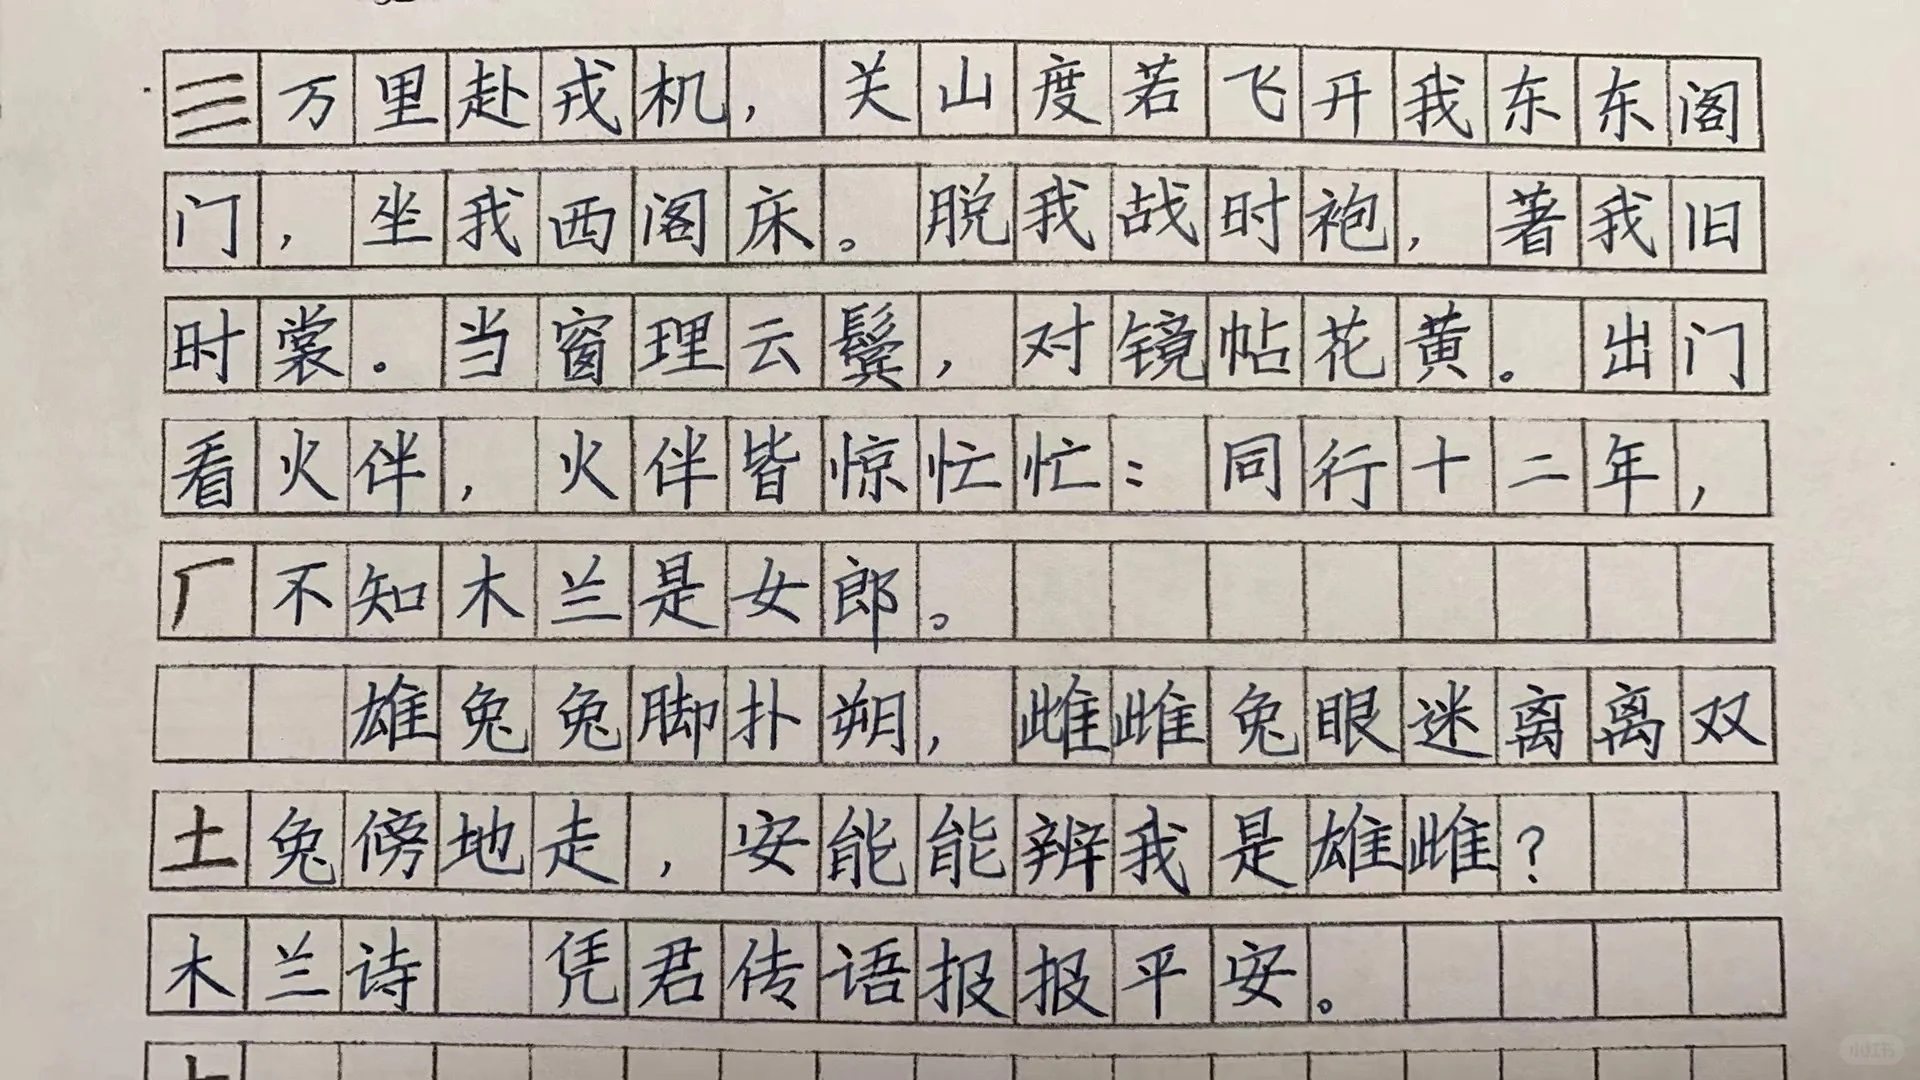 三万里赴戎机，关山度若飞开我东东阁
门，坐我西阁床。脱我战时袍，著我旧
时裳。当窗理云鬓，对镜帖花黄。出门
看火伴，火伴皆惊忙忙：同行十二年，
厂不知木兰是女郎。
雄兔兔脚扑朔，雌雌兔眼迷离离双
土兔傍地走，安能能辨我是雄雌？
木兰诗 凭君传语报报平安。
小红书